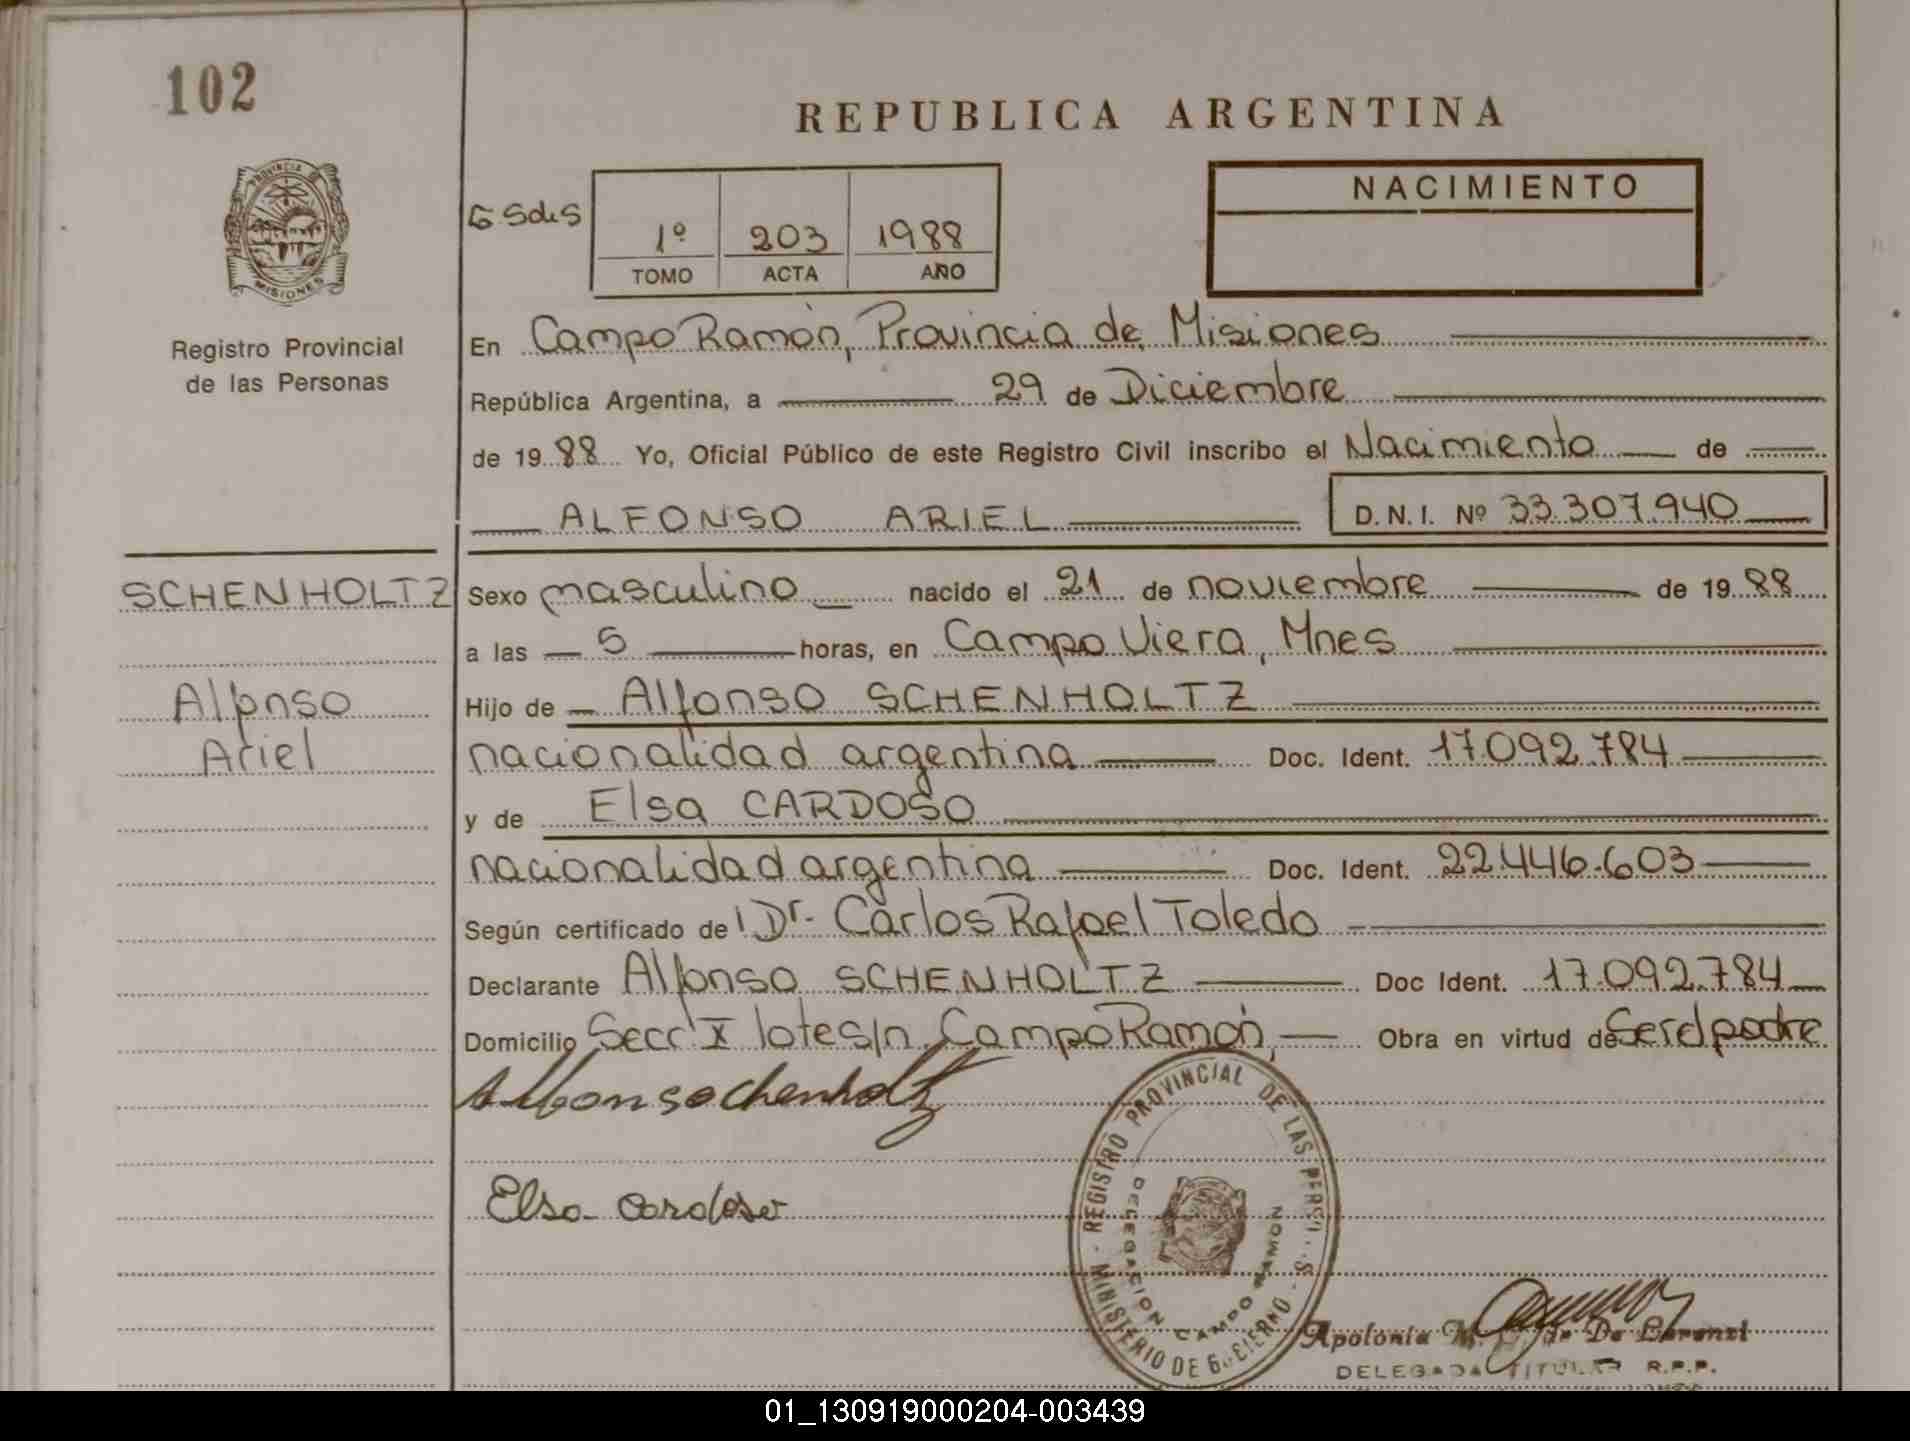 102
REPUBLICA ARGENTINA
NACIMIENTO
1º 203 1988
TOMO ACTA AÑO
PROVINCIA DE
MISIONES
Registro Provincial
de las Personas
En Campo Ramón, Provincia de Misiones
República Argentina, a 29 de Diciembre
de 19 88 Yo, Oficial Público de este Registro Civil inscribo el Nacimiento de
ALFONSO ARIEL D.N.I. Nº 33.307.940
SCHENHOLTZ
Alfonso
Ariel
Sexo masculino nacido el 21 de noviembre de 19 88
a las 5 horas, en Campo Viera, Mnes
Hijo de Alfonso SCHENHOLTZ
nacionalidad argentina Doc. Ident. 17.092.784
y de Elsa CARDOSO
nacionalidad argentina Doc. Ident. 22.446.603
Según certificado de Dr. Carlos Rafael Toledo
Declarante Alfonso SCHENHOLTZ Doc Ident. 17.092.784
Domicilio Secc X lote s/n. Campo Ramón, Obra en virtud de Ser el padre
Alfonso Schenholtz
Elsa Cardoso
MINISTERIO DE GOBIERNO - REGISTRO PROVINCIAL DE LAS PERSONAS
DELEGACION CAMPO RAMON
Apolonia de De Lorenzi
DELEGADA TITULAR R.P.P.
01_130919000204-003439